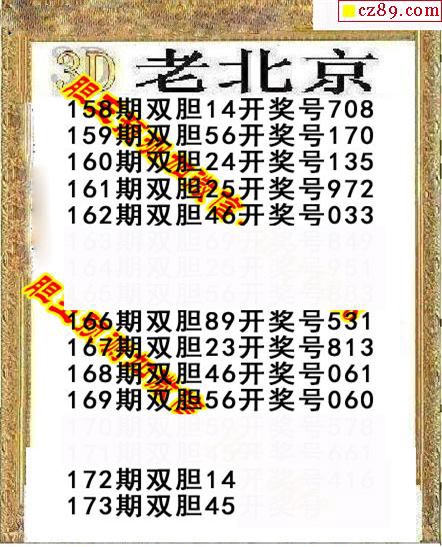 cz89.com
3D 老北京
158期双胆14开奖号708
159期双胆56开奖号170
160期双胆24开奖号135
161期双胆25开奖号972
162期双胆46开奖号033
166期双胆89开奖号531
167期双胆23开奖号813
168期双胆46开奖号061
169期双胆56开奖号060
172期双胆14
173期双胆45